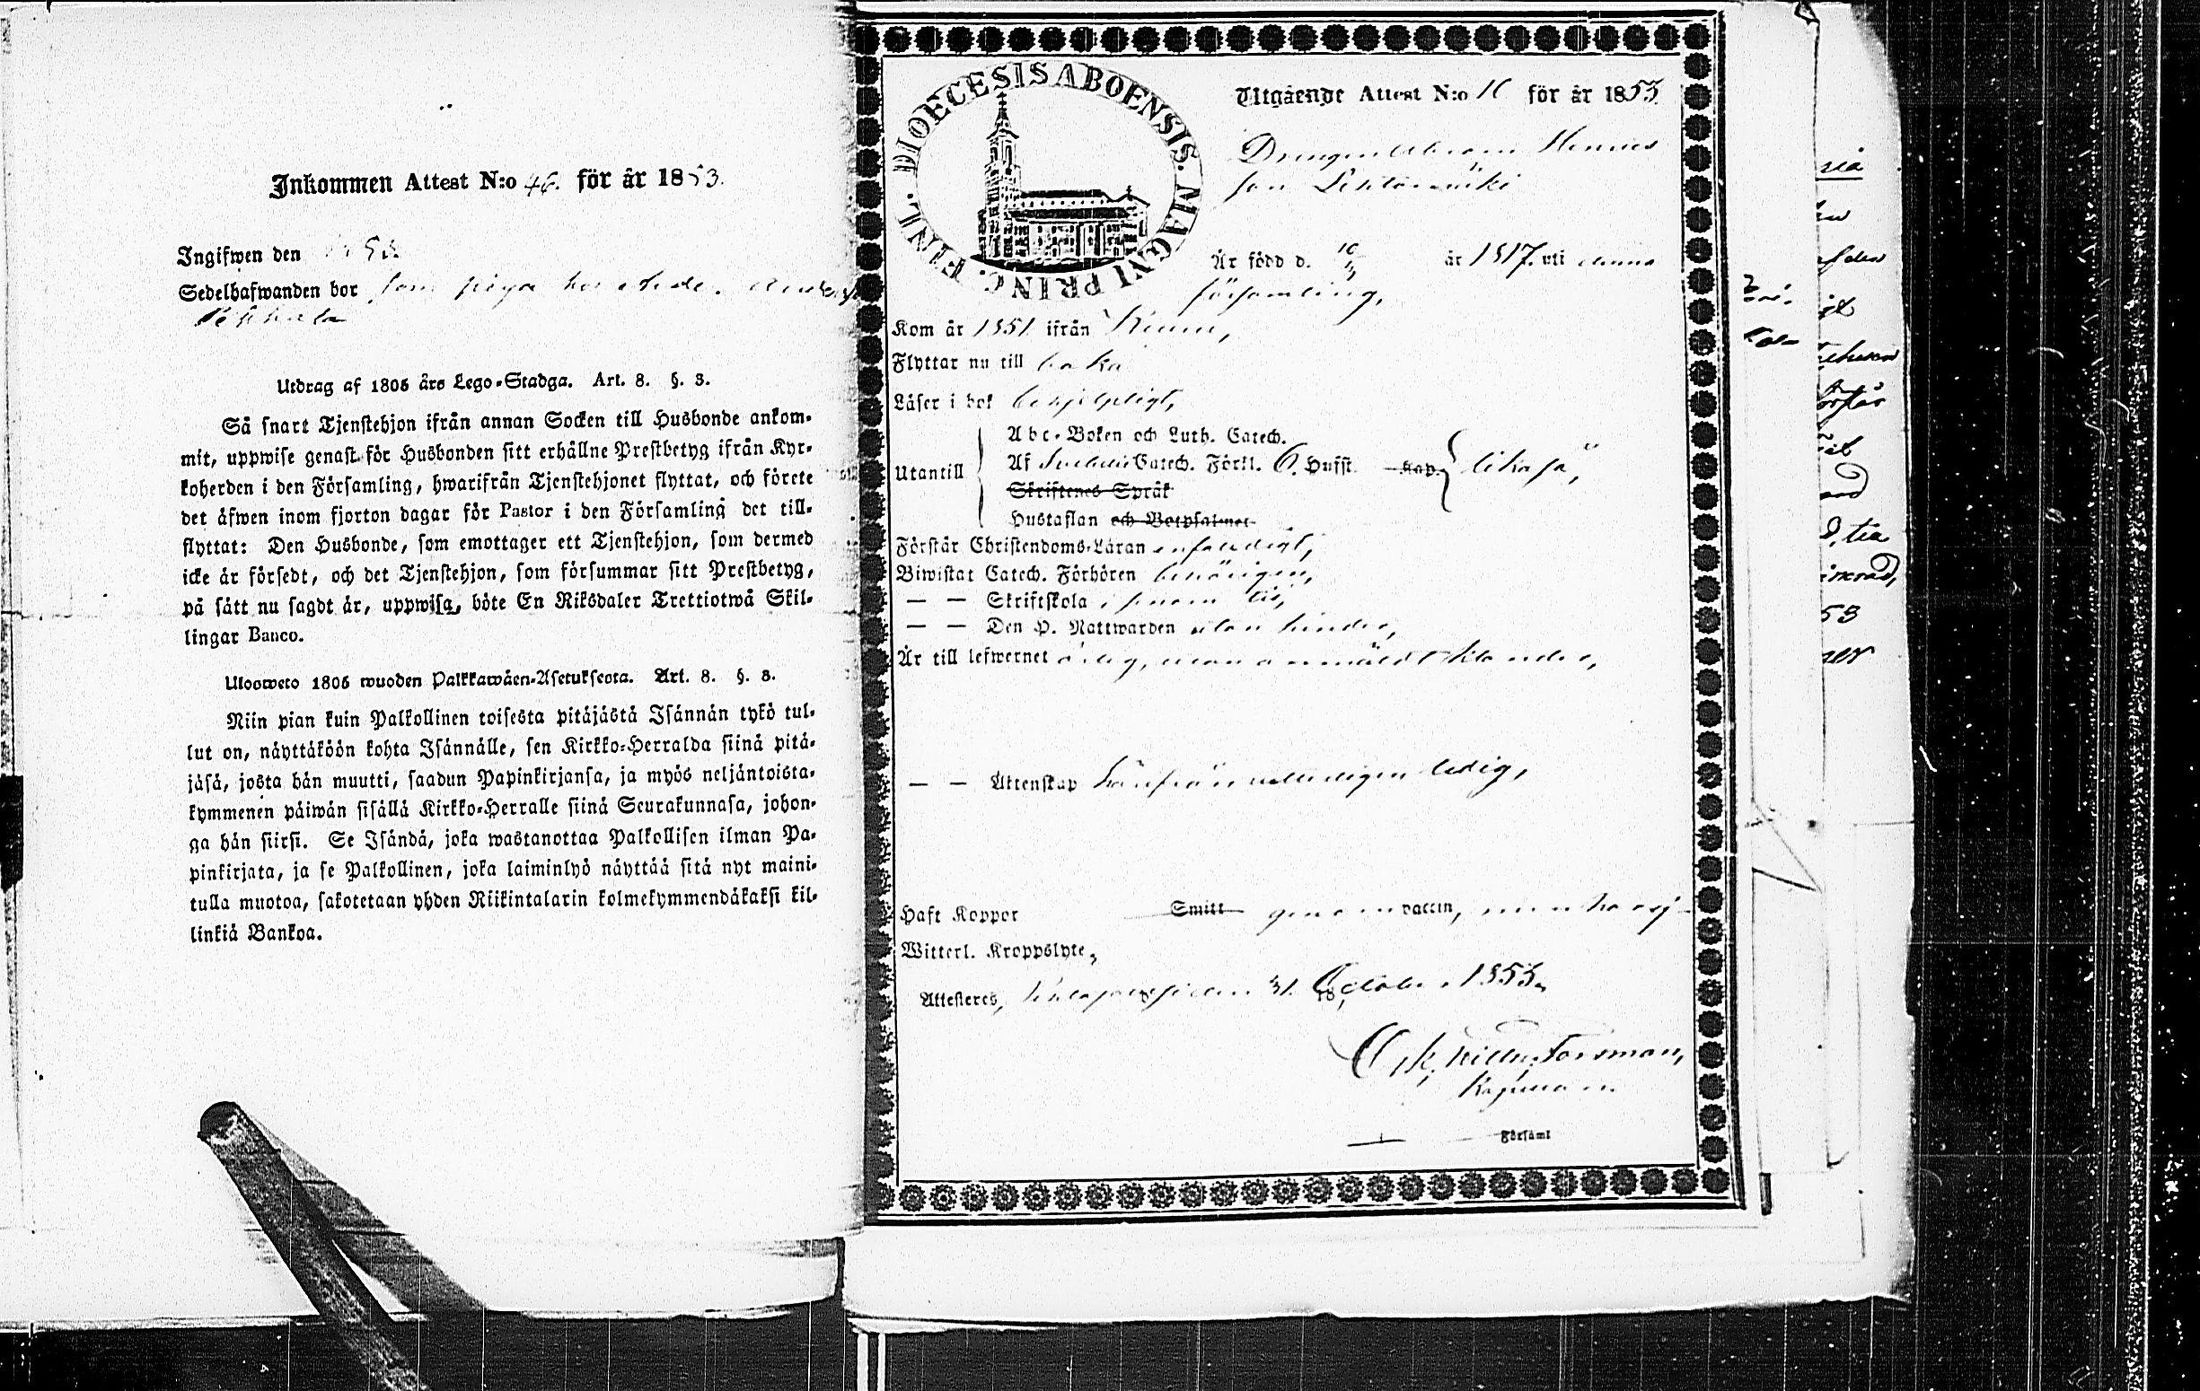 Inkommen Attest N:o 46. för år 1853.
Ingifwen den
Sedelhafwanden bor som piga hos
Utdrag af 1805 års Lego-Stadga. Art. 8. §. 3.
Så snart Tjenstehjon ifrån annan Socken till Husbonde ankom-
mit, uppwise genast för Husbonden sitt erhållne Prestbetyg ifrån Kyr-
koherden i den Församling, hwarifrån Tjenstehjonet flyttat, och förete
det äfwen inom fjorton dagar för Pastor i den Församling det till-
flyttat: Den Husbonde, som emottager ett Tjenstehjon, som dermed
icke är försedt, och det Tjenstehjon, som försummar sitt Prestbetyg,
på sätt nu sagdt är, uppwisa, böte En Riksdaler Trettiotwå Skil-
lingar Banco.
Ulosweto 1805 wuoden Palkkawäen-Asetuksesta. Art. 8. §. 3.
Niin pian kuin Palkollinen toisesta pitäjästä Isännän tykö tul-
lut on, näyttäköön kohta Isännälle, sen Kirkko-Herralda siinä pitä-
jäsä, josta hän muutti, saadun Papinkirjansa, ja myös neljäntoista-
kymmenen päiwän sisällä Kirkko-Herralle siinä Seurakunnasa, johon-
ga hän siirsi. Se Isändä, joka wastanottaa Palkollisen ilman Pa-
pinkirjata, ja se Palkollinen, joka laiminlyö näyttää sitä nyt maini-
tulla muotoa, sakotetaan yhden Riikintalarin kolmekymmendäkaksi kil-
linkiä Bankoa.
DIOECESIS ABOENSIS. MAGNI PRINC. FINL.
Utgående Attest N:o för år 1853
Drengen Abram Henrics
son
Är född d. 10/3 år 1817. uti denna
församling,
Kom år 1851 ifrån Kiuru,
Flyttar nu till baka
Läser i bok behjelpligt,
Abc-Boken och Luth. Catech.
Utantill Af Svebelii Catech. Förkl. 6. Hufst. Kap. likaså,
Skriftenes Språk
Hustaflan och Botpsalmer
Förstår Christendoms-Läran enfaldigt,
Biwistat Catech. Förhören behörigen,
— — Skriftskola i sinom tid,
— — Den H. Nattwarden utan hinder,
Är till lefwernet ärlig, utan anmäldt klander,
— — Äktenskap härifrån ledig,
Haft Koppor Smitt genom vaccin,
Witterl. Kroppslyte,
Attesteras, den 31. October 1853.
Forsman,
Kapellan
Församl